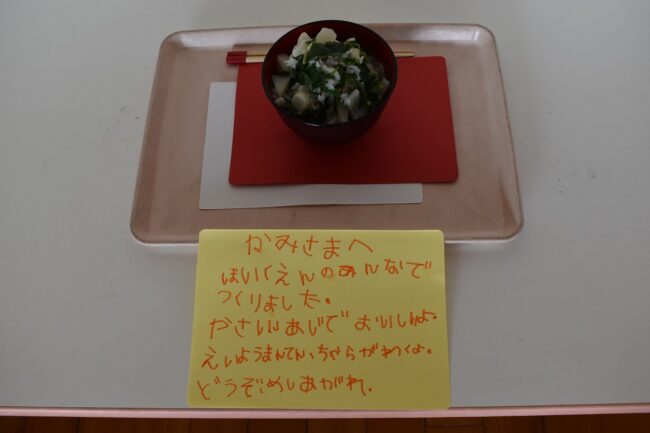 かみさまへ
ほいくえんのみんなで
つくりました。
やさいあじでおいしいよ。
えいようまんてん、ちからがわくよ。
どうぞめしあがれ。